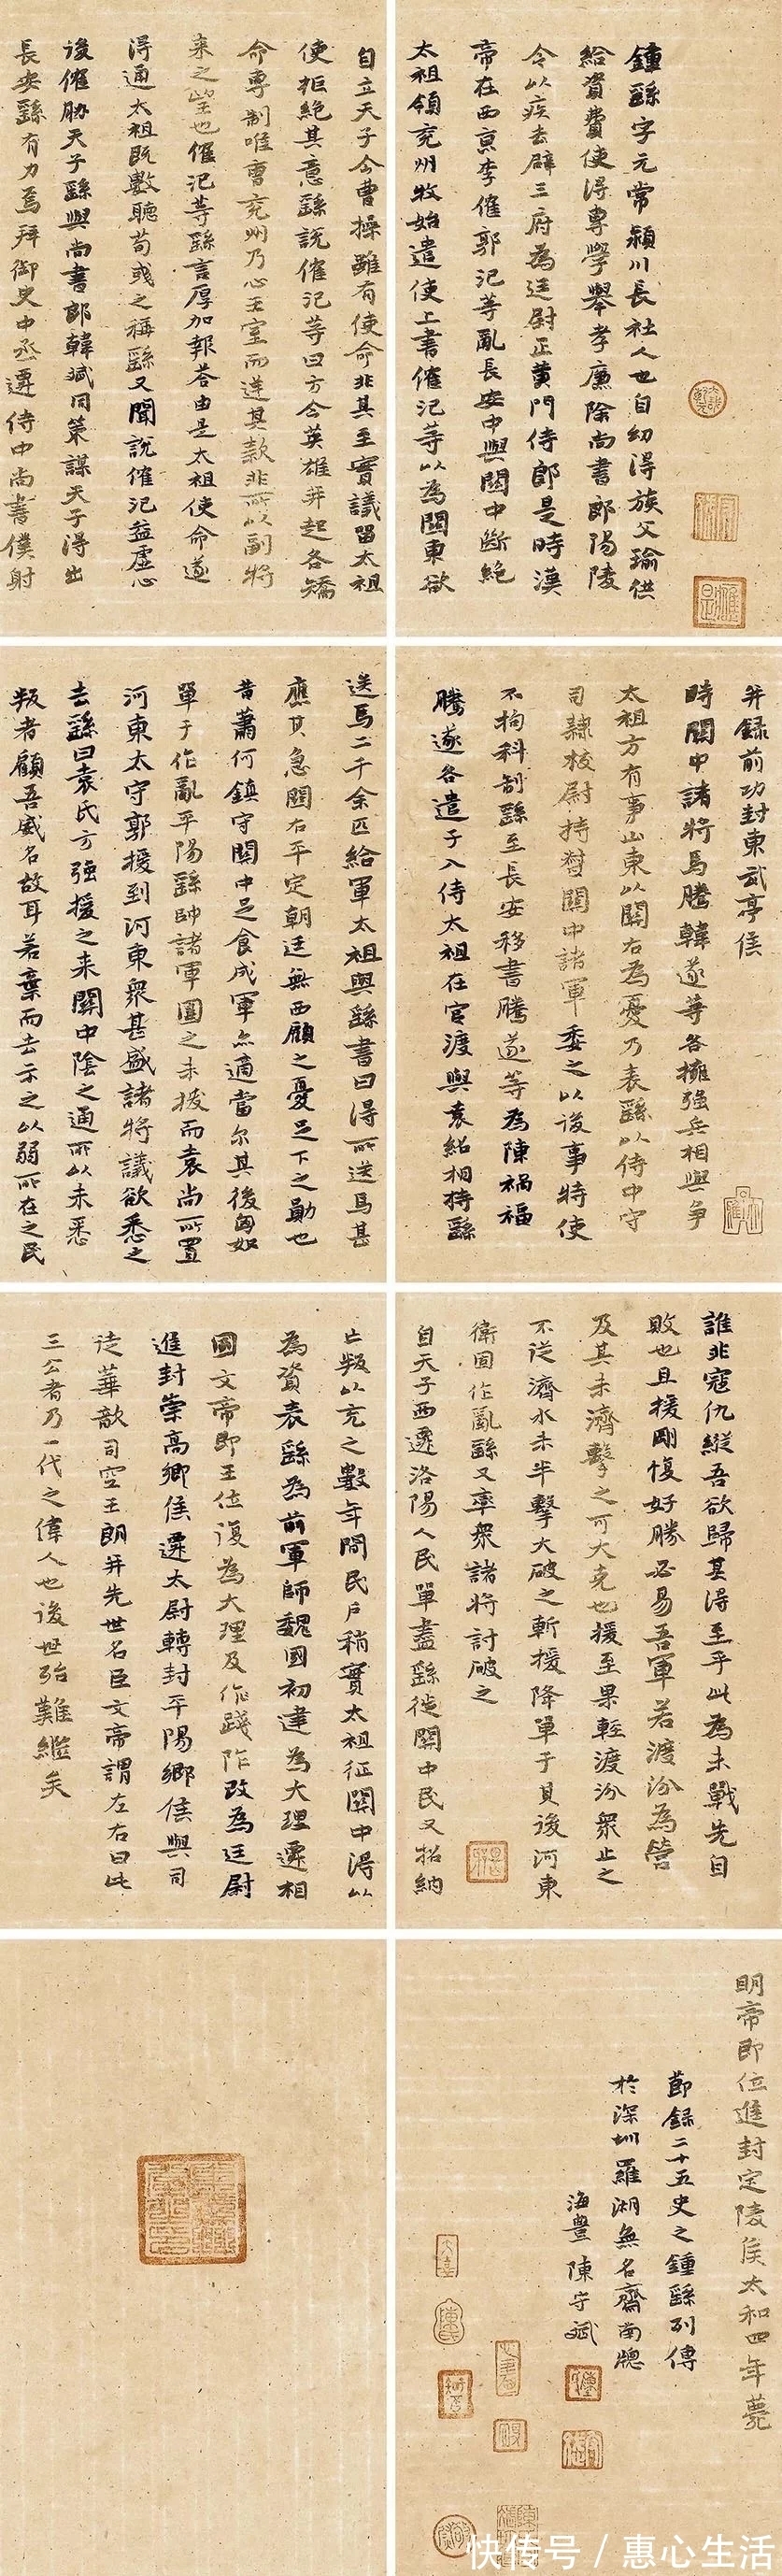 鍾繇字元常潁川長社人也自幼得族父瑜供
給資費使得專學舉孝廉除尚書郎陽陵
令以疾去辟三府為廷尉正黃門侍郎是時漢
帝在西京李傕郭汜等亂長安中與關中斷絕
太祖領兗州牧始遣使上書傕汜等以為關東欲
自立天子今曹操雖有使命非其至實議留太祖
使拒絕其意繇說傕汜等曰方今英雄并起各矯
命專制唯曹兗州乃心王室而逆其款非所以副將
來之望也傕汜等繇言厚加報答由是太祖使命遂
得通太祖既數聽荀彧之稱繇又聞說傕汜益虛心
後傕脅天子繇與尚書郎韓斌同策謀天子得出
長安繇有力焉拜御史中丞遷侍中尚書僕射
并錄前功封東武亭侯
時關中諸將馬騰韓遂等各擁強兵相與爭
太祖方有事山東以關右為憂乃表繇以侍中守
司隸校尉持督關中諸軍委之以後事特使
不拘科制繇至長安移書騰遂等為陳禍福
騰遂各遣子入侍太祖在官渡與袁紹相持繇
送馬二千余匹給軍太祖與繇書曰得所送馬甚
應其急關右平定朝廷無西顧之憂足下之勛也
昔蕭何鎮守關中足食成軍亦適當尔其後匈奴
單于作亂平陽繇帥諸軍圍之未拔而袁尚所置
河東太守郭援到河東眾甚盛諸將議欲悉之
去繇曰袁氏方強援之來關中陰之通所以未悉
叛者顧吾威名故耳若棄而去示之以弱所在之民
誰非寇仇縱吾欲歸其得至乎此為未戰先自
敗也且援剛愎好勝必易吾軍若渡汾為營
及其未濟擊之可大克也援至果輕渡汾眾止之
不從濟水未半擊大破之斬援降單于其後河東
衛固作亂繇又率眾諸將討破之
自天子西遷洛陽人民單盡繇徙關中民又招納
亡叛以充之數年間民戶稍實太祖征關中得以
為資表繇為前軍師魏國初建為大理遷相
國文帝即王位復為大理及作踐阼改為廷尉
進封崇高鄉侯遷太尉轉封平陽鄉侯與司
徒華歆司空王朗并先世名臣文帝謂左右曰此
三公者乃一代之偉人也後世殆難繼矣
明帝即位進封定陵侯太和四年薨
節錄二十五史之鍾繇列傳
於深圳羅湖無名齋南牕
海豐陳守斌
快传号 / 惠心生活